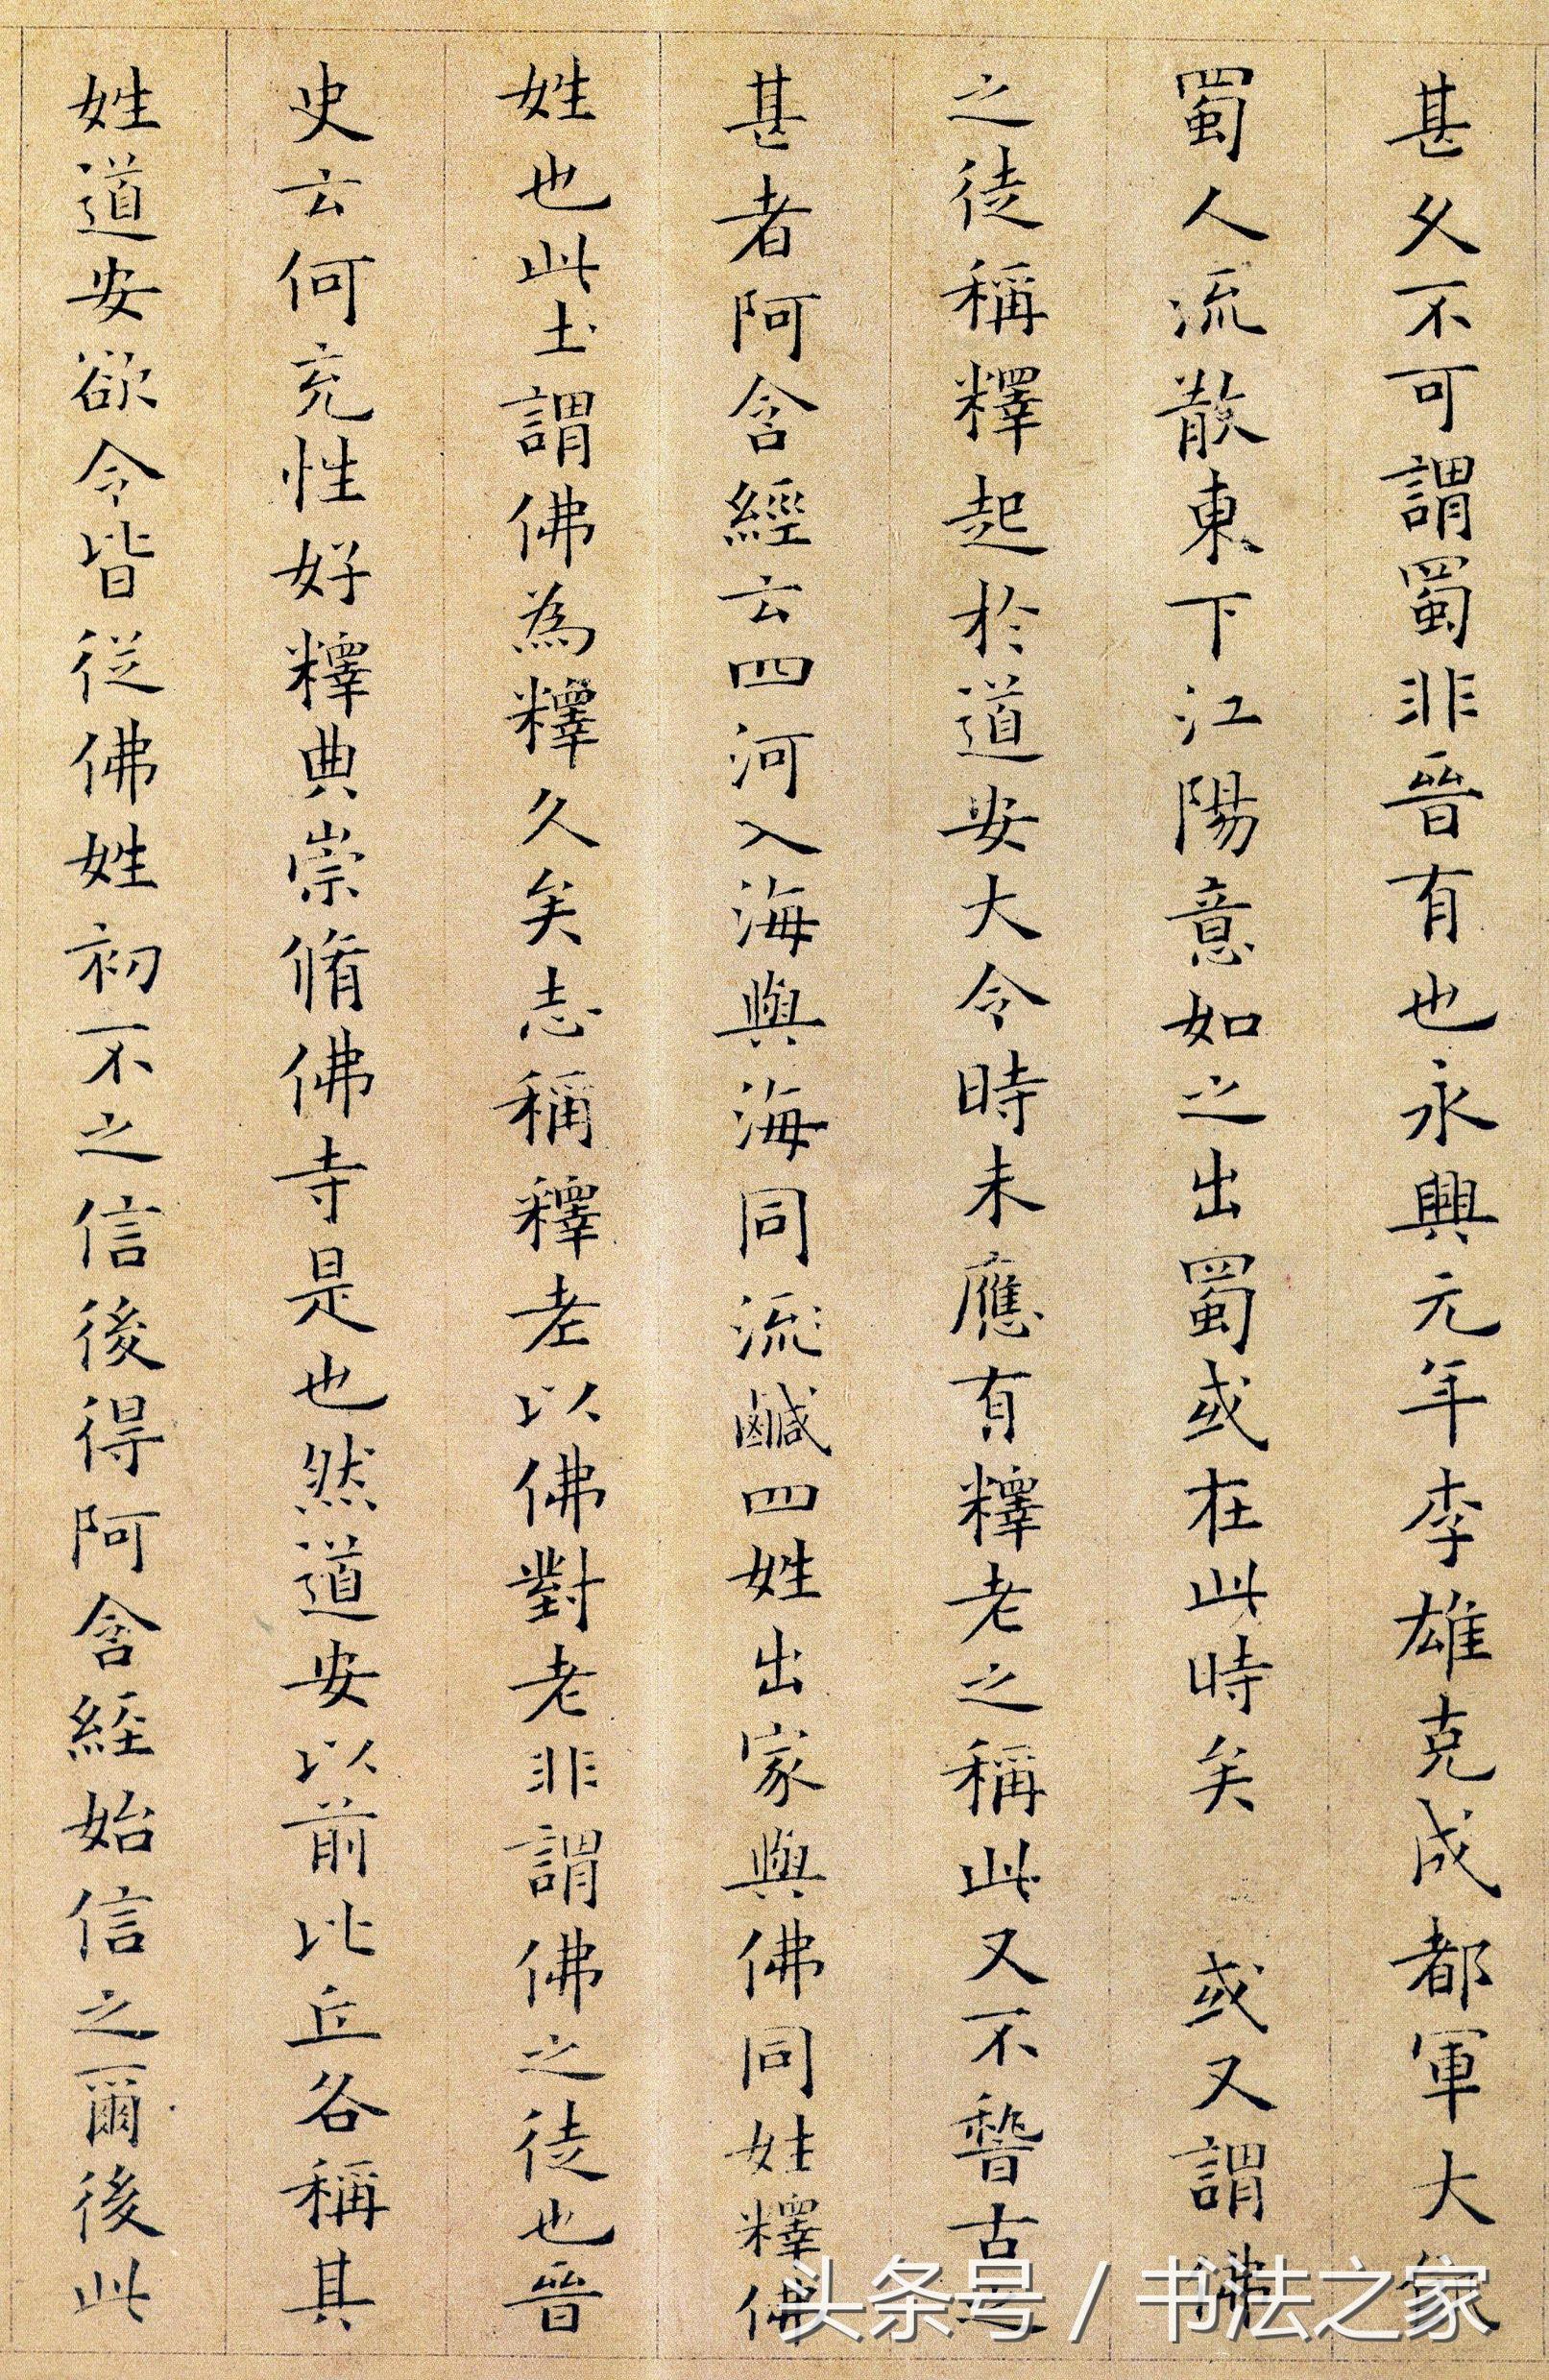 甚久不可謂蜀非晉有也永興元年李雄克成都軍大
蜀人流散東下江陽意如之出蜀或在此時矣 或又謂佛
之徒稱釋起於道安大令時未應有釋老之稱此又不稽古之
甚者阿含經云四河入海與海同流鹹四姓出家與佛同姓釋佛
姓也此土謂佛為釋久矣志稱釋老以佛對老非謂佛之徒也晉
史云何充性好釋典崇脩佛寺是也然道安以前比丘各稱其
姓道安欲令皆從佛姓初不之信後得阿含經始信之爾後此
头条号 / 书法之家